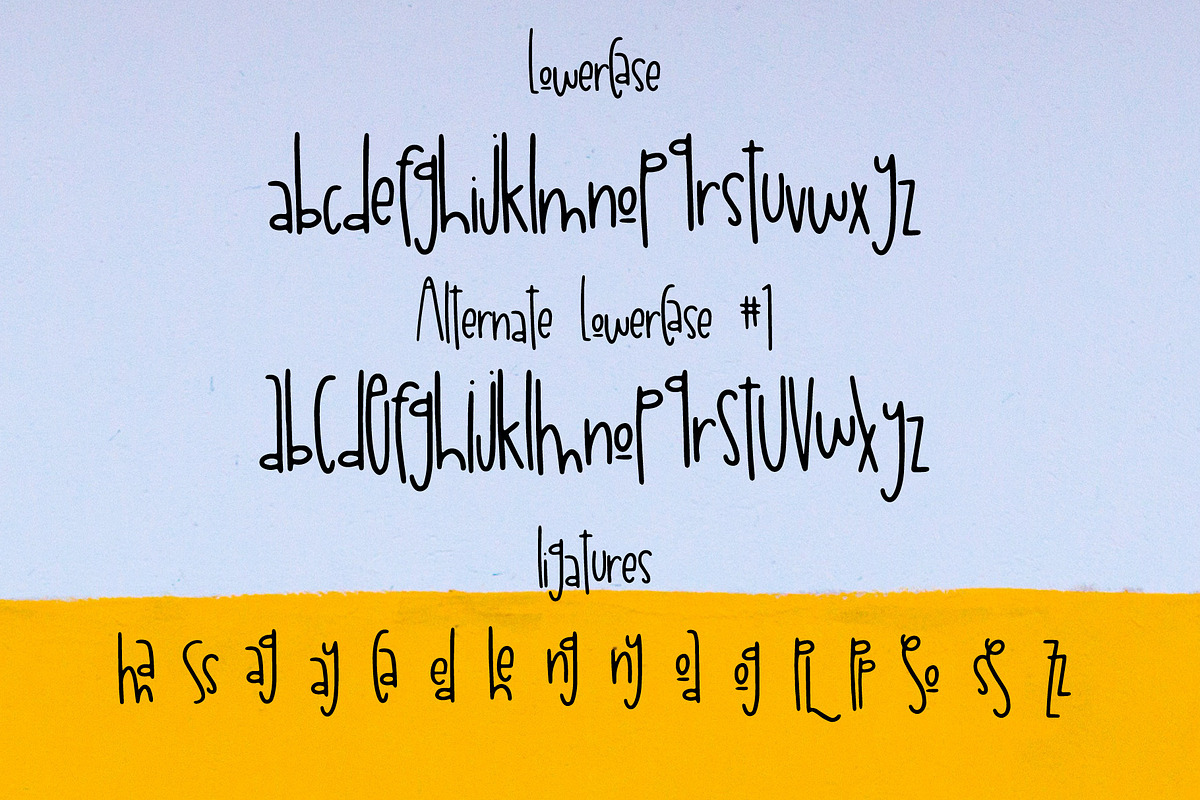 LowerCase
abcdefghijklmnopqrstuvwxyz
Alternate LowerCase #1
abcdefghijklmnopqrstuvwxyz
ligatures
ha ss ag ay Ca ed he ng ny od og PL PP So sp zz